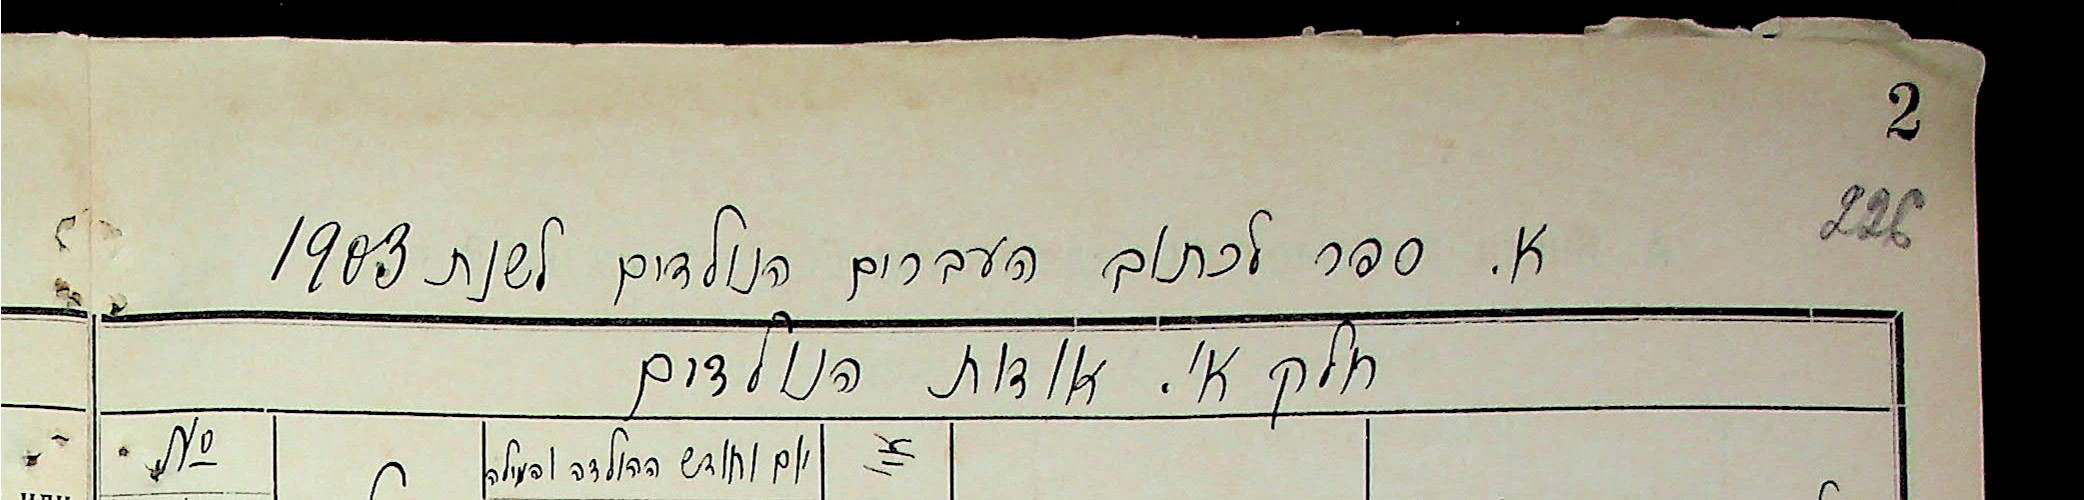 2
226
א. ספר לכתוב העברים הנולדים לשנת 1903
חלק א'. אודות הנולדים
יום וחודש ההולדה והמילה
№
или